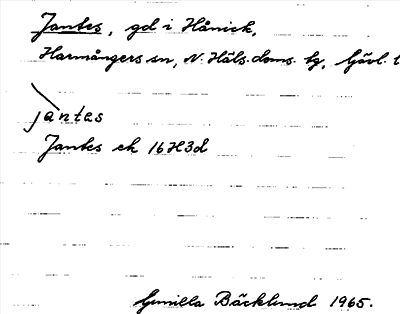 Jantes, gd i Hånick,
Harmångers sn, N. Häls. doms. hg, Gävl. l
jantes
Jantes ek 16H3d
Gunilla Bäcklund 1965.